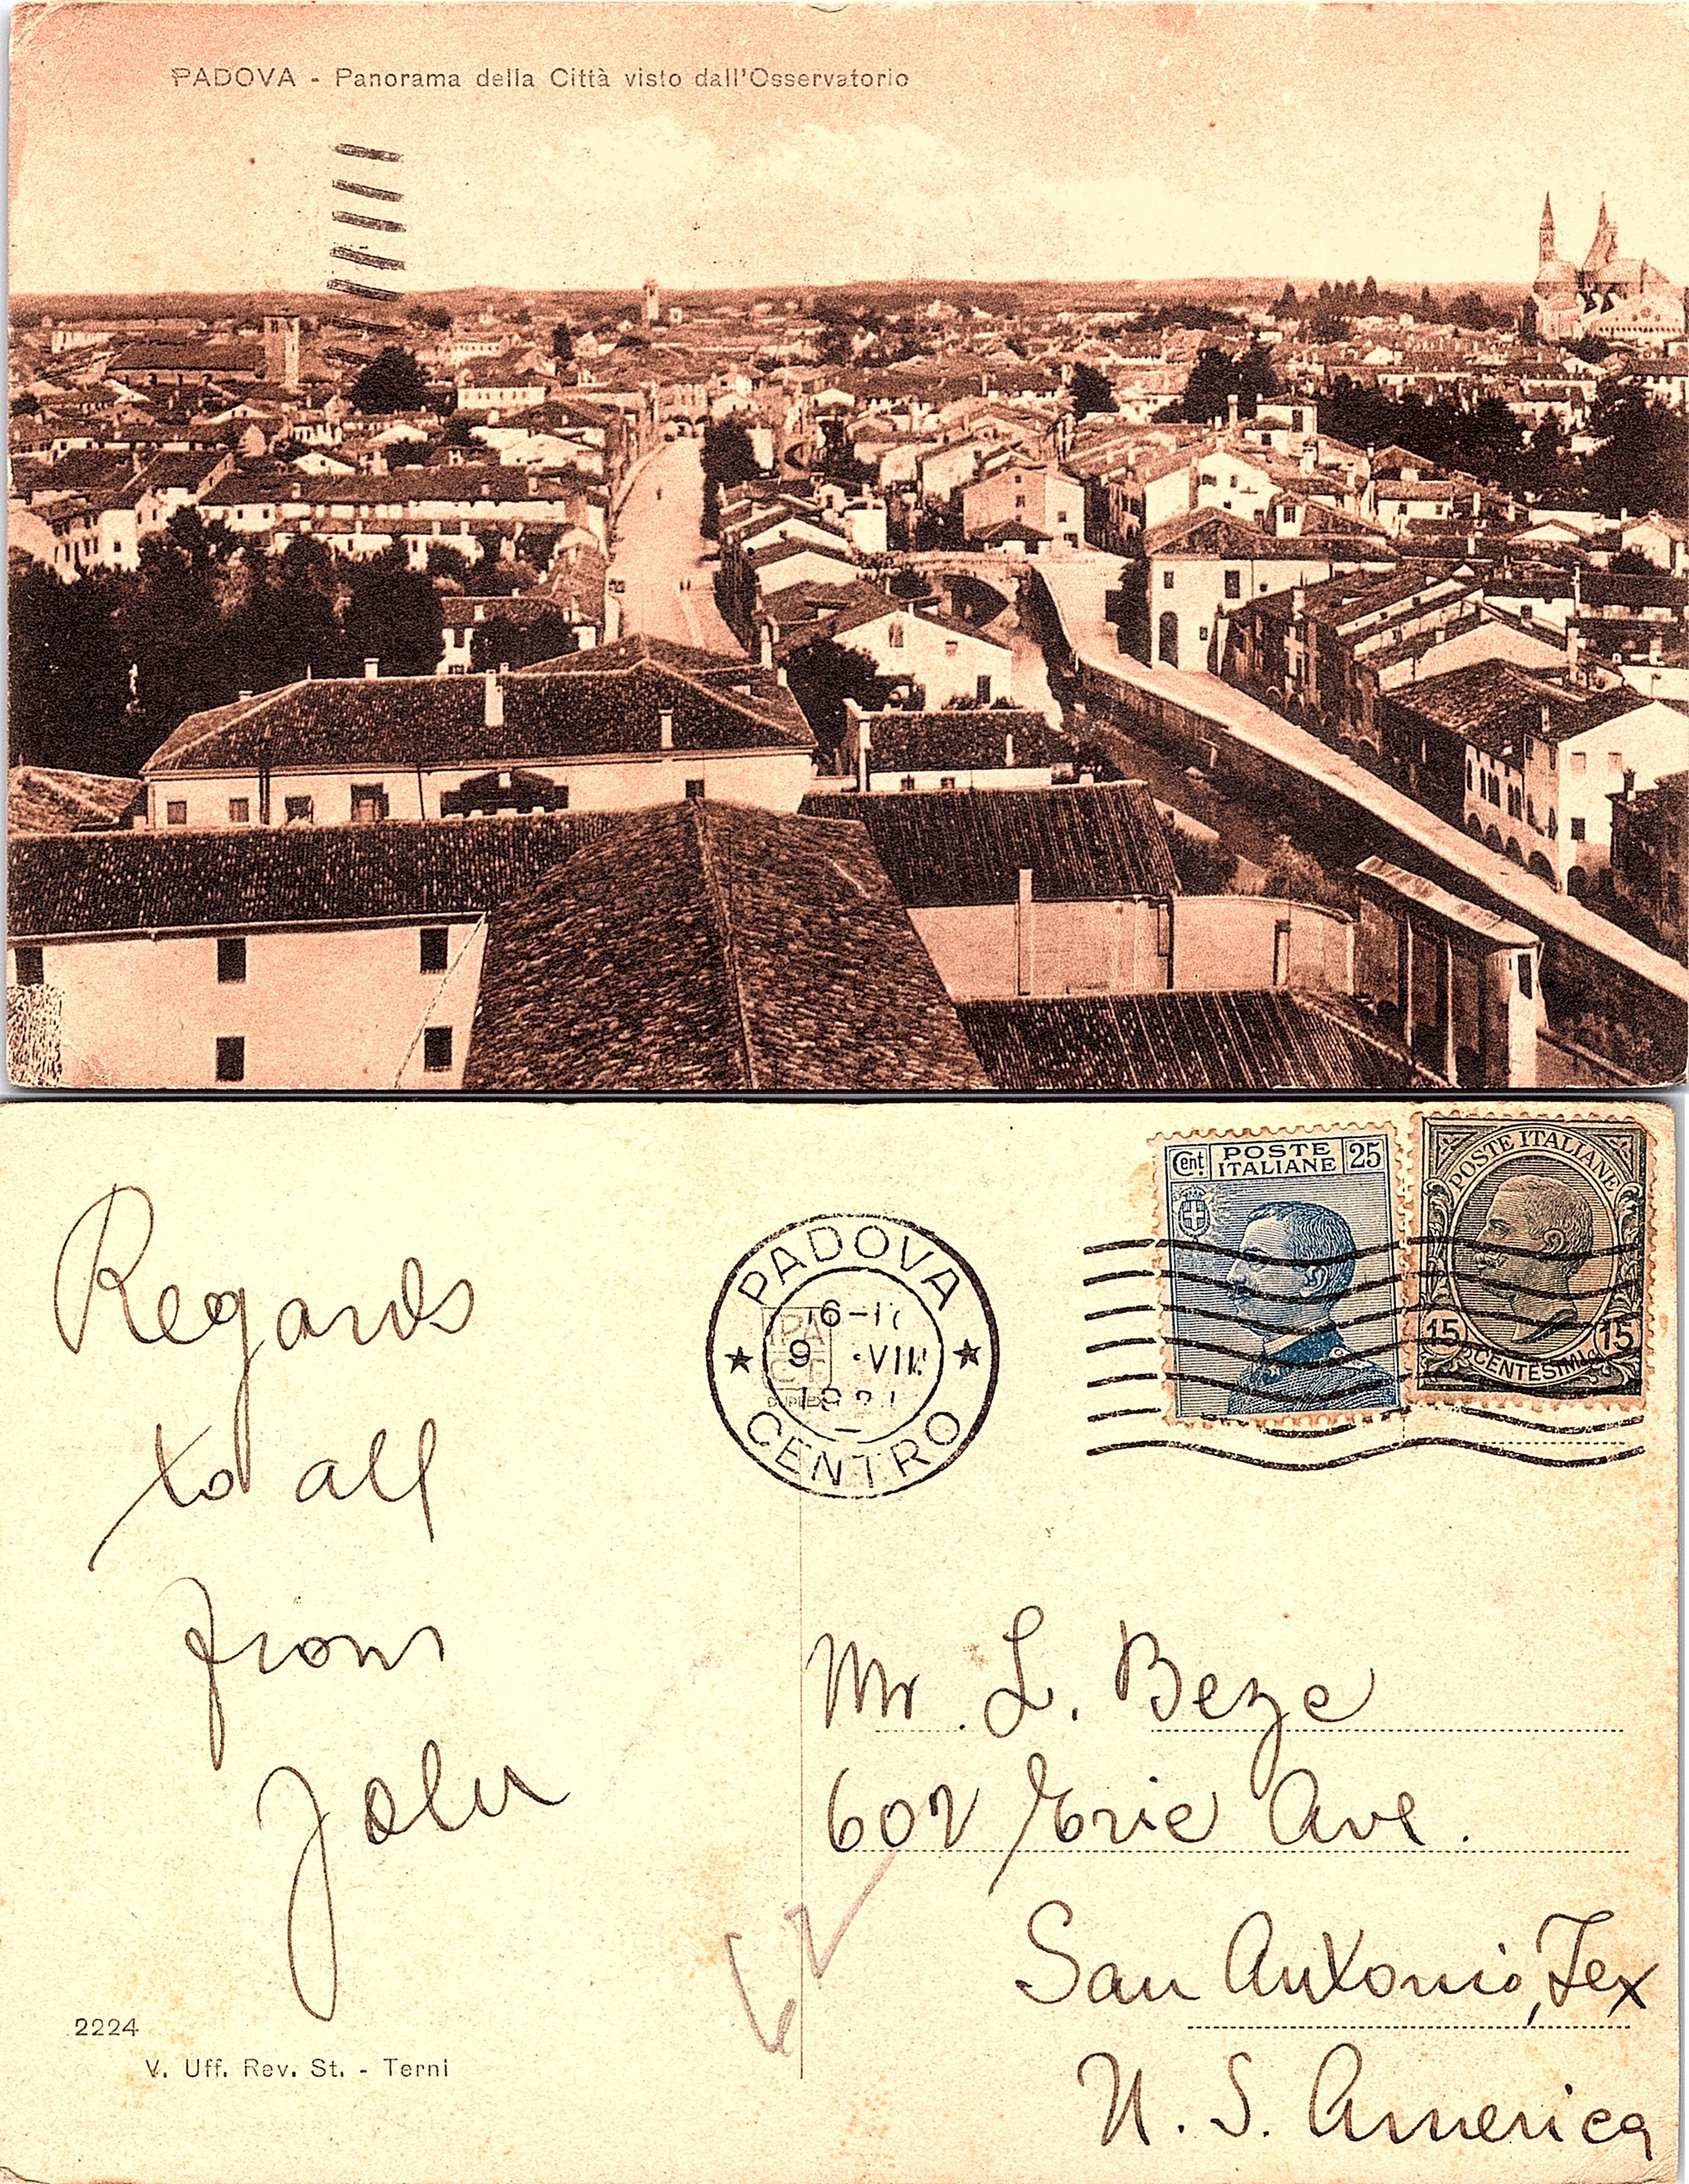 PADOVA - Panorama della Città visto dall'Osservatorio
Regards
to all
from
John
2224
V. Uff. Rev. St. - Terni
PADOVA
16-17
9 VII
CENTRO
DUPLEX
Cent. POSTE ITALIANE 25
POSTE ITALIANE
15 CENTESIMI 15
Mr. L. Beze
602 Erie Ave.
San Antonio, Tex
U. S. America